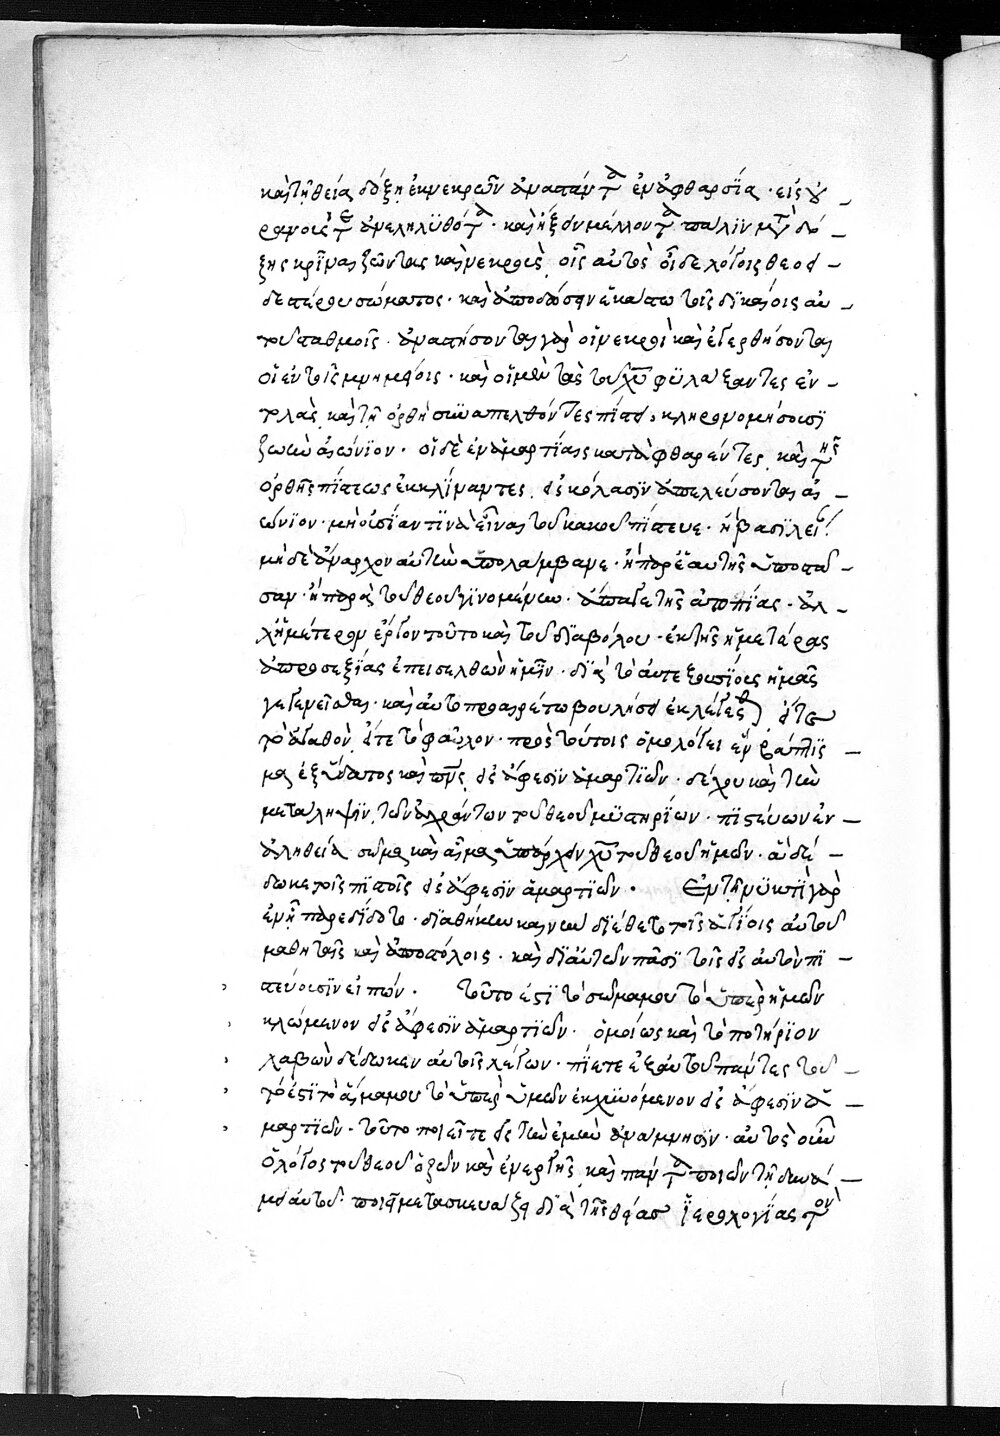 καὶ τῇ θεία δόξη ἐκ νεκρῶν ἀναστάντα ἐν ἀφθαρσία · εἰς οὐ
ρανοὺς τε ἀνεληλυθότα · καὶ ἥξειν μέλλοντα πάλιν μετὰ δό
ξης κρῖναι ζῶντας καὶ νεκροὺς οἷς αὐτὸς οἶδε λόγοις θεοει
δεστέρου σώματος · καὶ ἀποδώσειν ἑκάστω τοῖς δικαίοις αὐ
τοῦ σταθμοῖς · ἀναστήσονται γὰρ οἱ νεκροὶ καὶ ἐγερθήσονται
οἱ ἐν τοῖς μνημείοις · καὶ οἱ μὲν τὰς τοῦ χῦ φυλάξαντες ἐν
τολὰς καὶ τῇ ὀρθῇ συναπελθόντες πίστει, κληρονομήσουσι
ζωὴν αἰώνιον · οἱ δὲ ἐν ἁμαρτίαις καταφθαρέντες καὶ τῆς
ὀρθῆς πίστεως ἐκκλίναντες εἰς κόλασιν ἀπελεύσονται αἰ
ώνιον · μὴ οὐσίαν τινὰ εἶναι τοῦ κακοῦ πίστευε · ἢ βασιλείαν
μὴ δὲ ἄναρχον αὐτὴν ὑπολάμβανε · ἢ παρ' ἑαυτῆς ὑποστᾶ
σαν · ἢ παρὰ τοῦ θεοῦ γινομένην · ἄπαγε τῆς ἀτοπίας · ἀλ
λ' ἡμέτερον ἔργον τοῦτο καὶ τοῦ διαβόλου · ἐκ τῆς ἡμετέρας
ἀπροσεξίας ἐπεισελθὼν ἡμῖν · διὰ τὸ αὐτεξουσίους ἡμᾶς
γεγενεῖσθαι · καὶ αὐτοπροαιρέτω βουλήσει ἐκλέγεσθαι εἴτε
τὸ ἀγαθὸν εἴτε τὸ φαῦλον · πρὸς τούτοις ὁμολόγει ἓν βάπτισ
μα ἐξ ὕδατος καὶ πνς εἰς ἄφεσιν ἁμαρτιῶν · δέχου καὶ τὴν
μετάληψιν τῶν ἀχράντων τοῦ θεοῦ μυστηρίων · πιστεύων ἐν
ἀληθεία σῶμα καὶ αἷμα ὑπάρχειν χῦ τοῦ θεοῦ ἡμῶν · ἃ δέ
δωκε τοῖς πιστοῖς εἰς ἄφεσιν ἁμαρτιῶν · Ἐν τῇ νυκτὶ γὰρ
ἐν ᾗ παρεδίδοτο · διαθήκην καινὴν διέθετο τοῖς ἁγίοις αὐτοῦ
μαθηταῖς καὶ ἀποστόλοις · καὶ δι' αὐτῶν πᾶσι τοῖς εἰς αὐτὸν πι
στεύουσιν εἰπών · τοῦτό ἐστι τὸ σῶμα μου τὸ ὑπὲρ ἡμῶν
κλώμενον εἰς ἄφεσιν ἁμαρτιῶν · ὁμοίως καὶ τὸ ποτήριον
λαβὼν δέδωκεν αὐτοῖς λέγων · πίετε ἐξ αὐτοῦ πάντες τοῦ
τό ἐστι τὸ αἷμα μου τὸ ὑπὲρ ὑμῶν ἐκχυνόμενον εἰς ἄφεσιν ἁ
μαρτιῶν · τοῦτο ποιεῖτε εἰς τὴν ἐμὴν ἀνάμνησιν · αὐτὸς οὖν
ὁ λόγος τοῦ θεοῦ ὁ ζῶν καὶ ἐνεργὴς καὶ πάντα ποιῶν τῇ δυνά
μει αὐτοῦ · ποιεῖ μετασκευάζει διὰ τῆς θείας ἱερολογίας τὸν